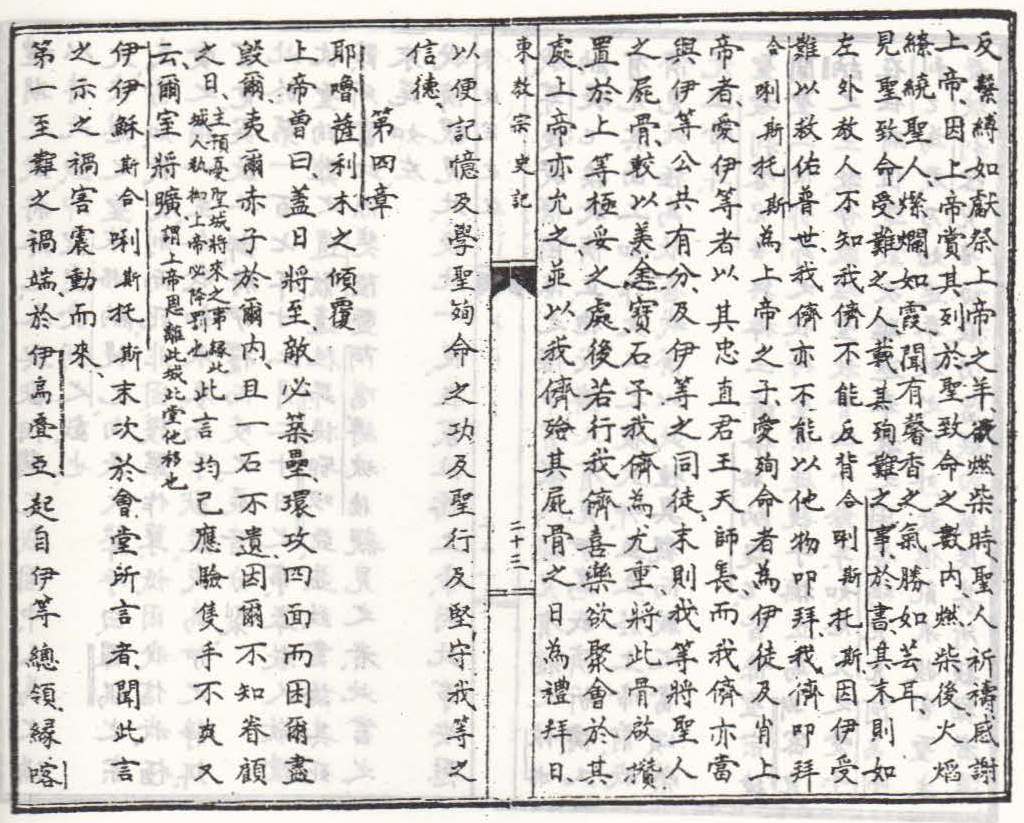 反繫縛如獻祭上帝之羊、欲燃柴時、聖人祈禱感謝
上帝、因上帝賞其列於聖致命之數內、燃柴後、火焰
繚繞聖人、燦爛如霞、聞有馨香之氣、勝如芸耳、
見聖致命受難之人、載其殉難之事於書、其末則如
左、外教人不知我儕不能反背合唎斯托斯、因伊受
難以救佑普世、我儕亦不能以他物叩拜、我儕叩拜
合唎斯托斯為上帝之子、愛殉命者為伊徒及肖上
帝者、愛伊等者以其忠直君王天師長而我儕亦當
與伊等公共有分、及伊等之同徒、末則我等將聖人
之屍骨、較以美金寶石予我儕為尤重、將此骨啟攢
置於上等極妥之處、後若行我儕喜樂欲聚會於其
處、上帝亦允之、並以我儕殮其屍骨之日為禮拜日、
東教宗史記
二十三
以便記憶及學聖殉命之功及聖行及堅守我等之
信德、
第四章
耶嚕薩利木之傾覆
上帝曾曰、蓋日將至、敵必築壘、環攻四面而困爾、盡
毀爾、夷爾赤子於爾內、且一石不遺、因爾不知眷顧
之日、主預憂聖城將來之事、緣此城人敵御上帝必降罰也、此言均已應驗隻手不爽、又
云、爾室將曠、謂上帝恩離此城此堂他移也
伊伊穌斯合唎斯托斯末次於會堂所言者、聞此言
之示之禍害震動而來、
第一至難之禍端、於伊高疊亞起自伊等總領、緣喀